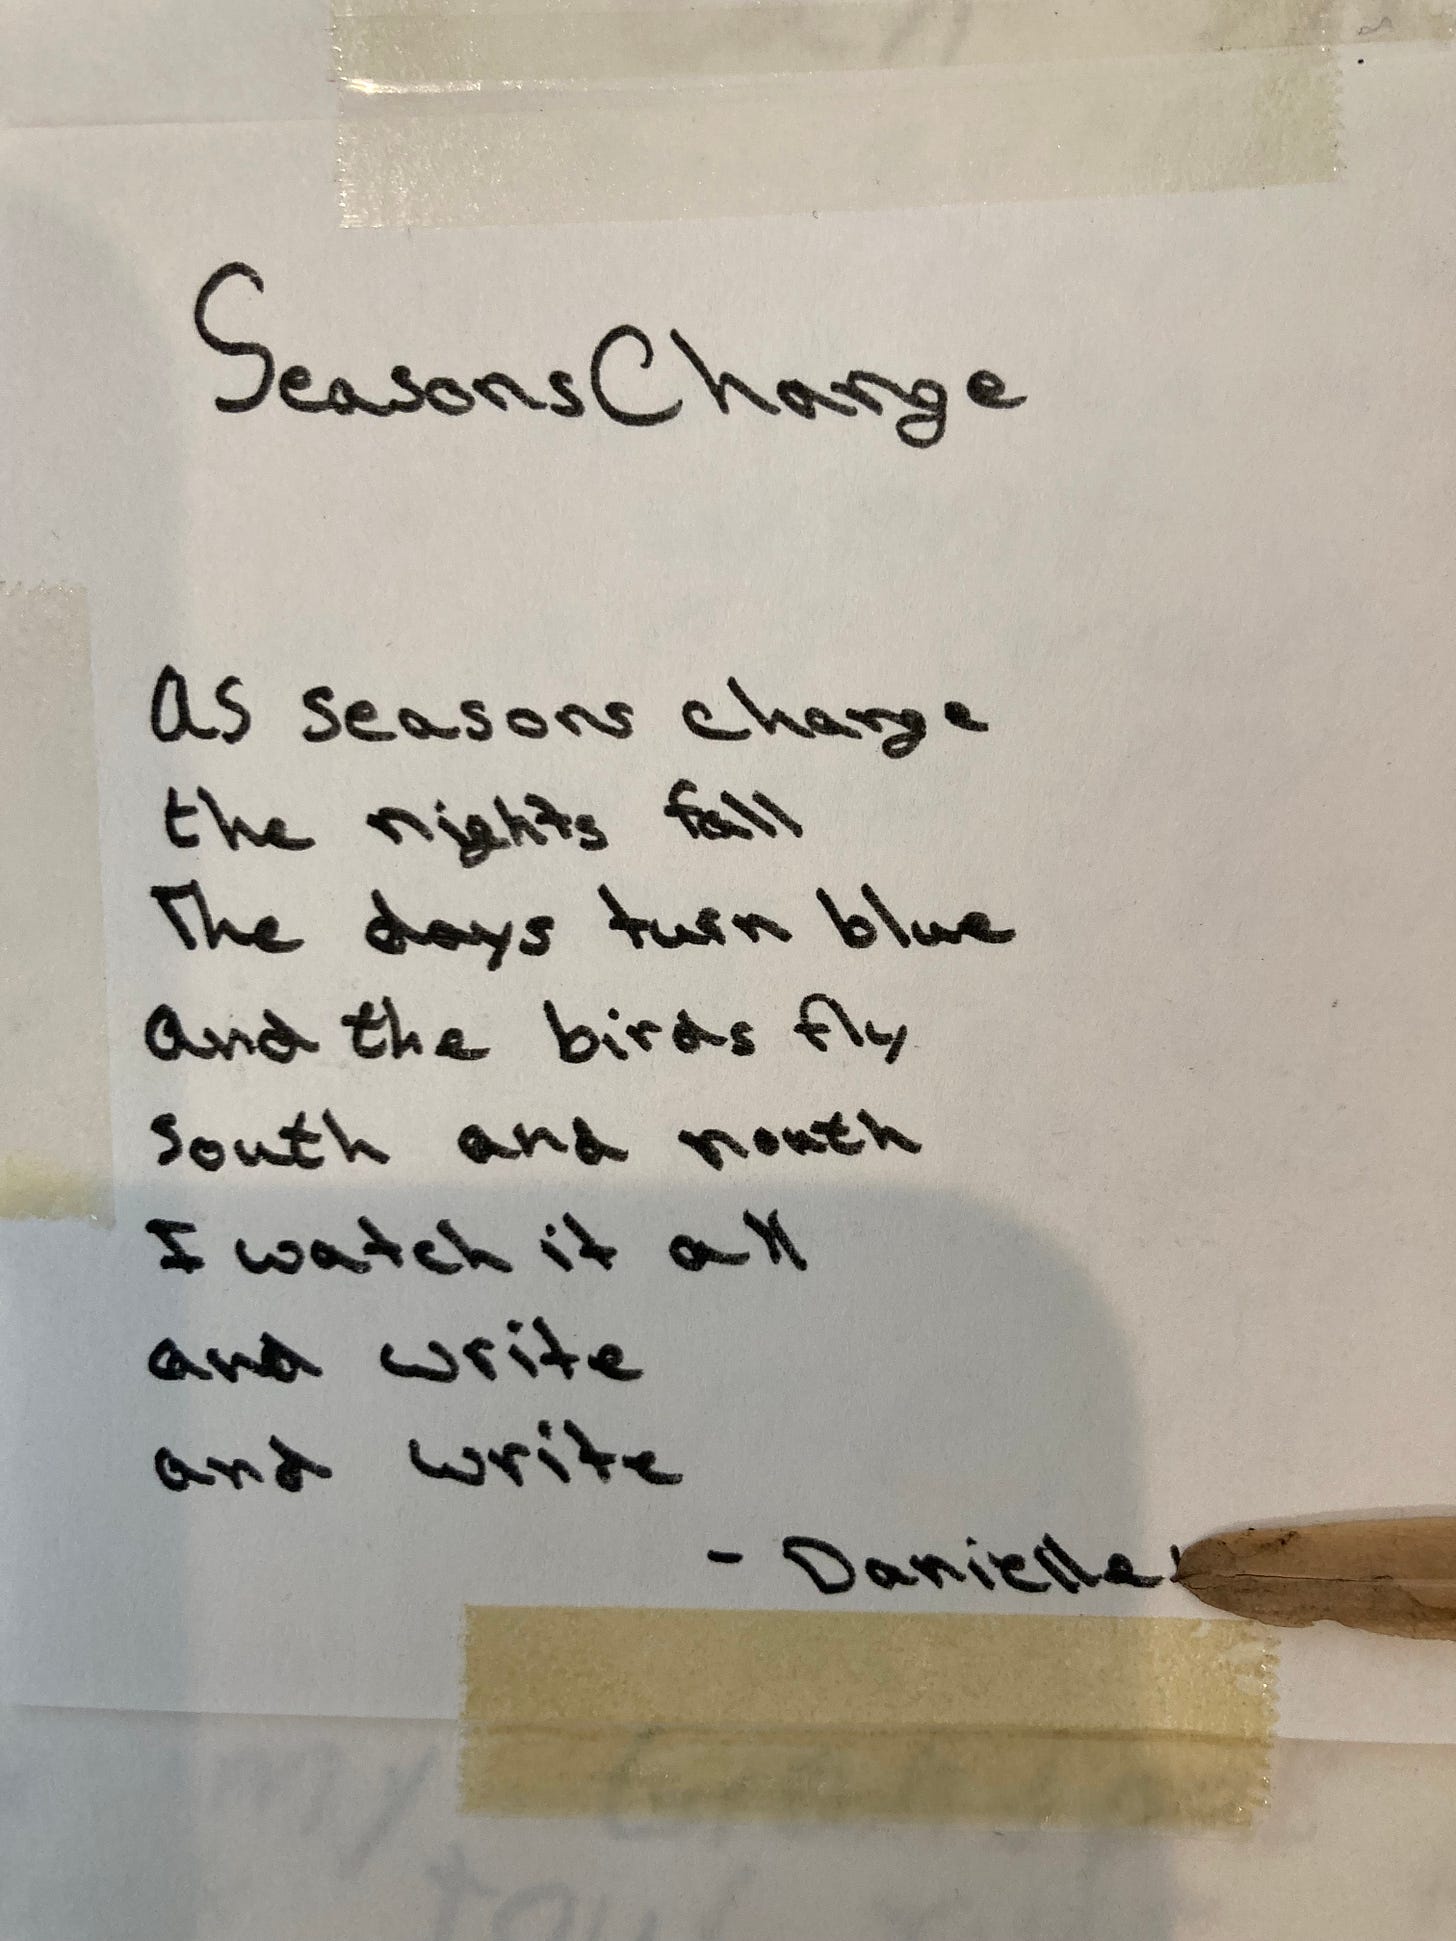 Seasons Change
As seasons change
the nights fall
The days turn blue
and the birds fly
south and nouth
I watch it all
and write
and write
- Danielle